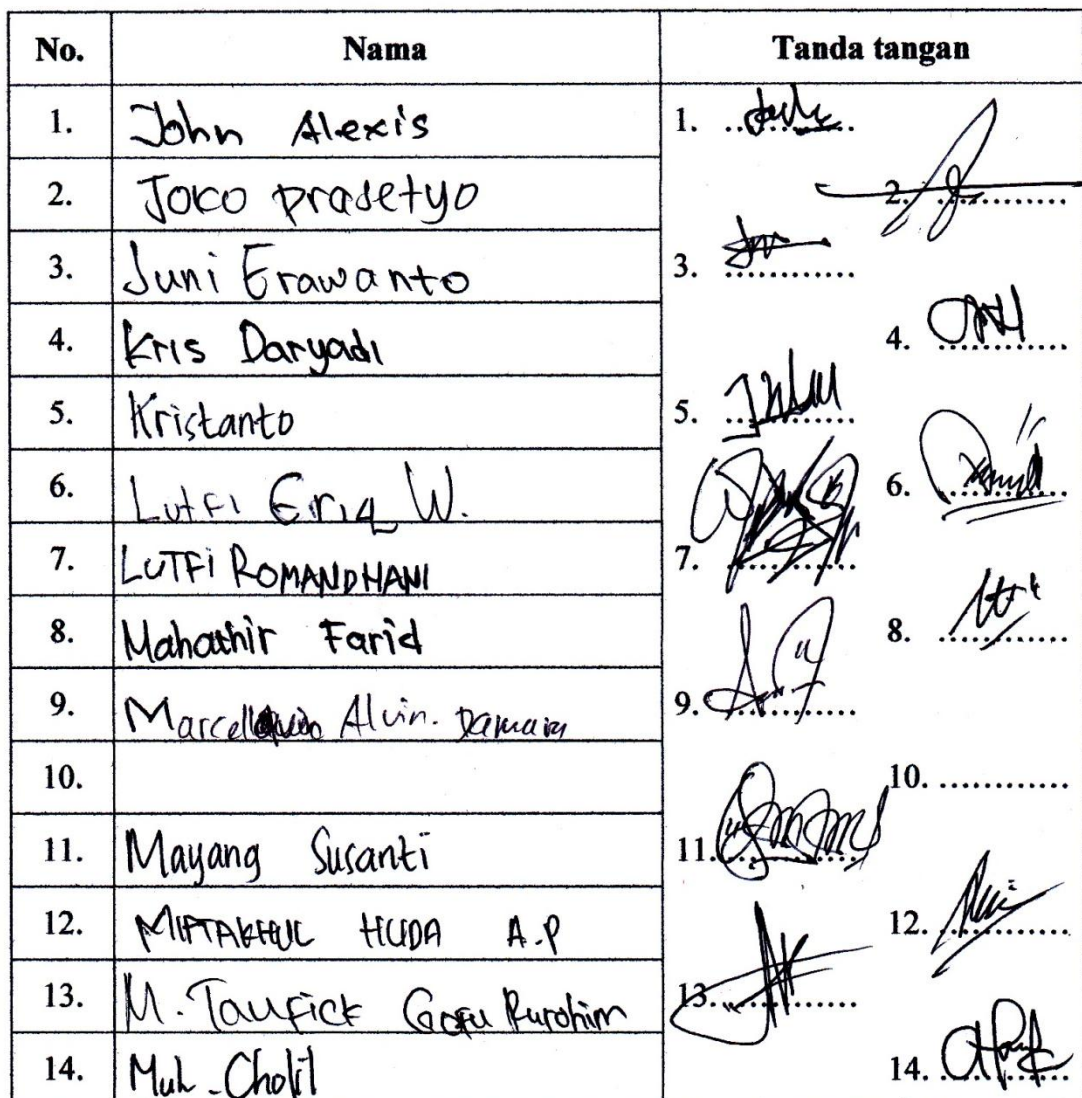 No. Nama Tanda tangan
1. John Alexis 1.
2. Joco prasetyo 2.
3. Juni Erawanto 3.
4. Kris Daryadi 4.
5. Kristanto 5.
6. Lutfi Eriq W. 6.
7. LUTFi ROMANDHANI 7.
8. Mahathir Farid 8.
9. Alvin. 9.
10. 10.
11. Mayang Susanti 11.
12. MIFTAKHUL HUDA A.P 12.
13. M. Taufick Gofu Rurohim 13.
14. Muh. Cholil 14.